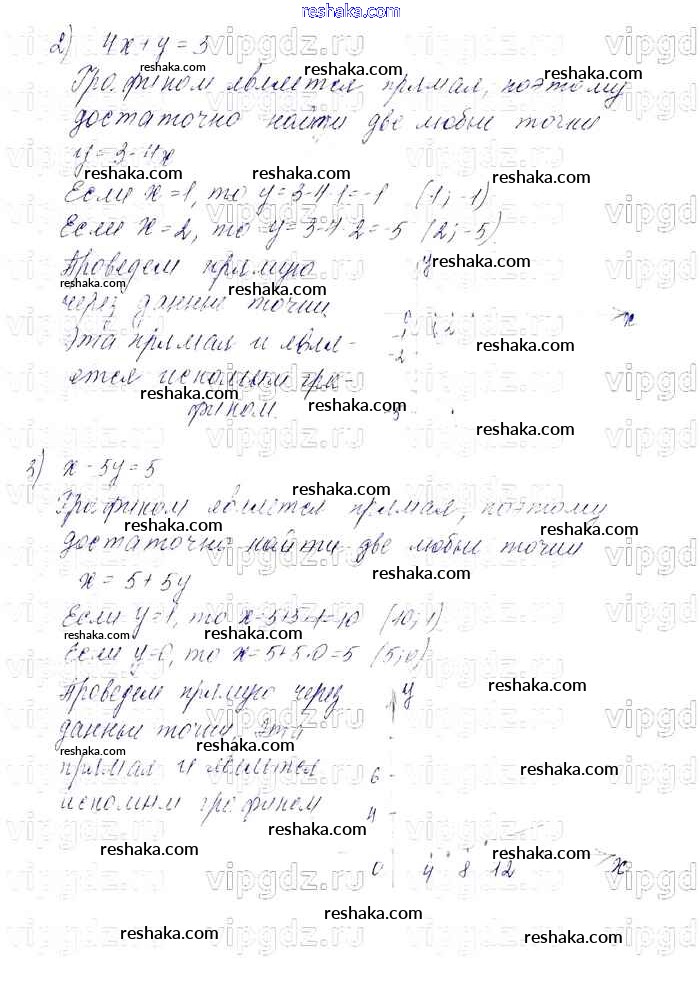 reshaka.com
2) 4x + y = 3
Графиком является прямая, поэтому
достаточно найти две любые точки
y = 3 - 4x
Если x = 1, то y = 3 - 4·1 = -1 (1; -1)
Если x = 2, то y = 3 - 4·2 = -5 (2; -5)
Проведем прямую
через данные точки.
Эта прямая и явля-
ется искомым гра-
фиком.
y
x
1 2
-2
3) x - 5y = 5
Графиком является прямая, поэтому
достаточно найти две любые точки
x = 5 + 5y
Если y = 1, то x = 5+5·1 = 10 (10; 1)
Если y = 0, то x = 5 + 5·0 = 5 (5; 0)
Проведем прямую через
данные точки. Эта
прямая и является
искомым графиком
y
6
4
0 4 8 12 x
reshaka.com
vipgdz.ru